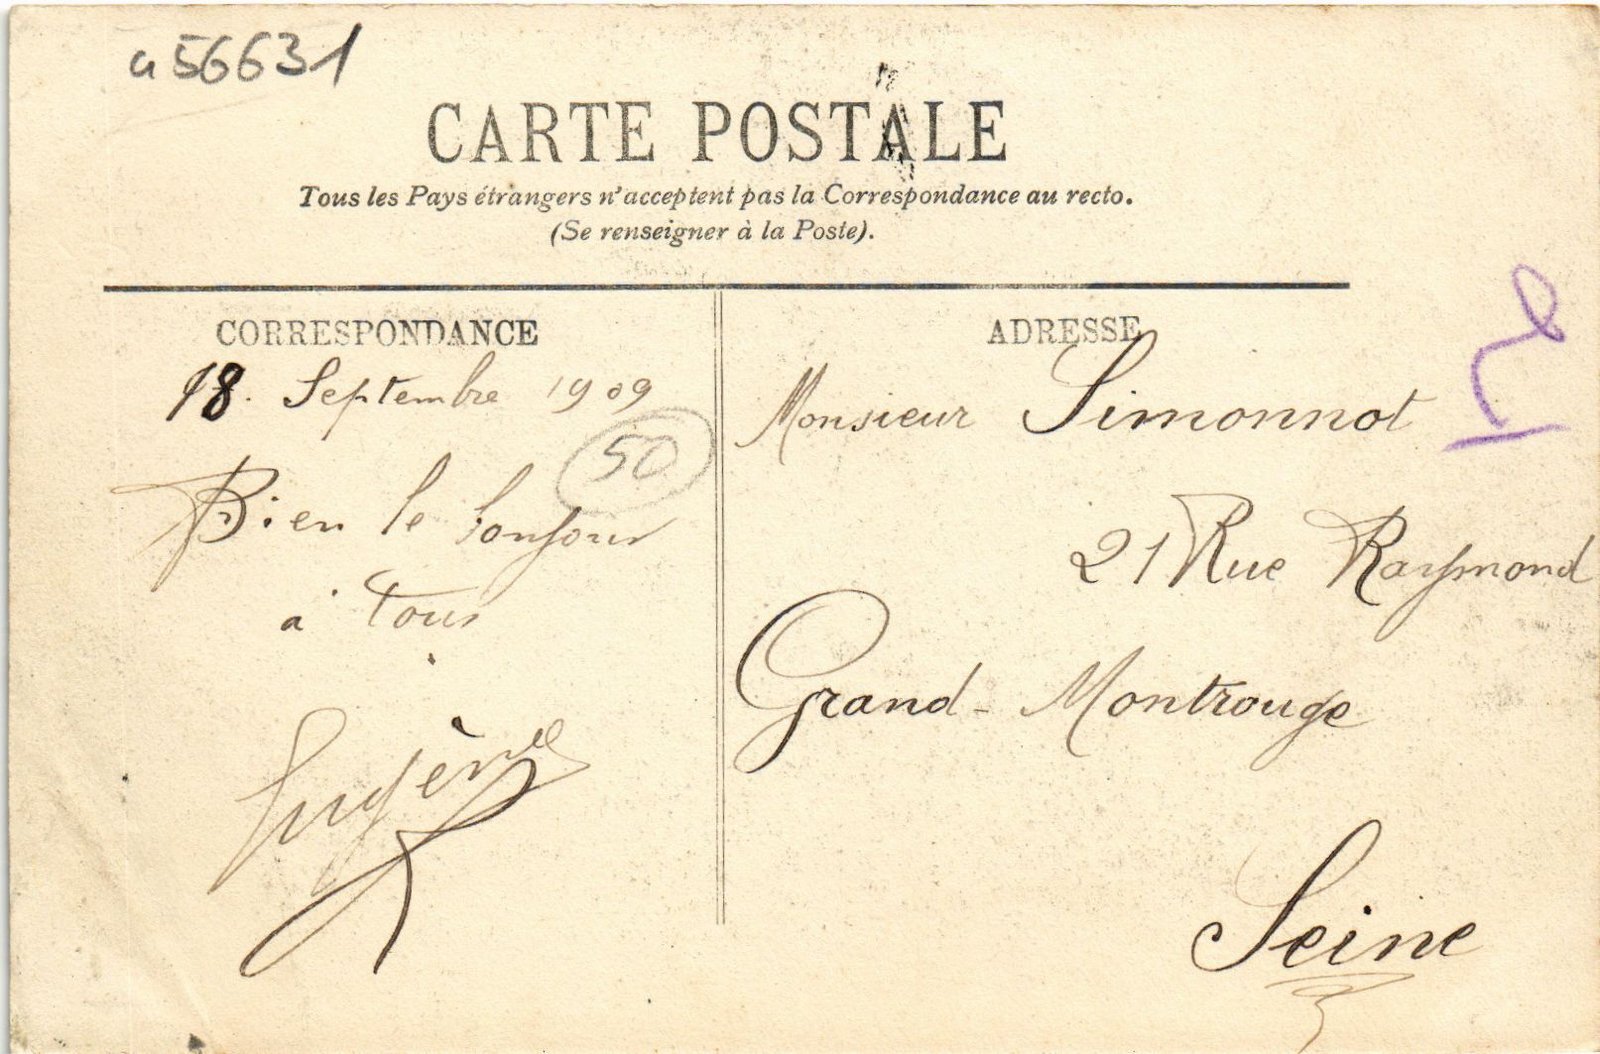 a56631
CARTE POSTALE
Tous les Pays étrangers n'acceptent pas la Correspondance au recto.
(Se renseigner à la Poste).
CORRESPONDANCE
18. Septembre 1909
50
Bien le bonjour
à tous
Eugène
ADRESSE
Monsieur Simonnot
21 Rue Raymond
Grand-Montrouge
Seine